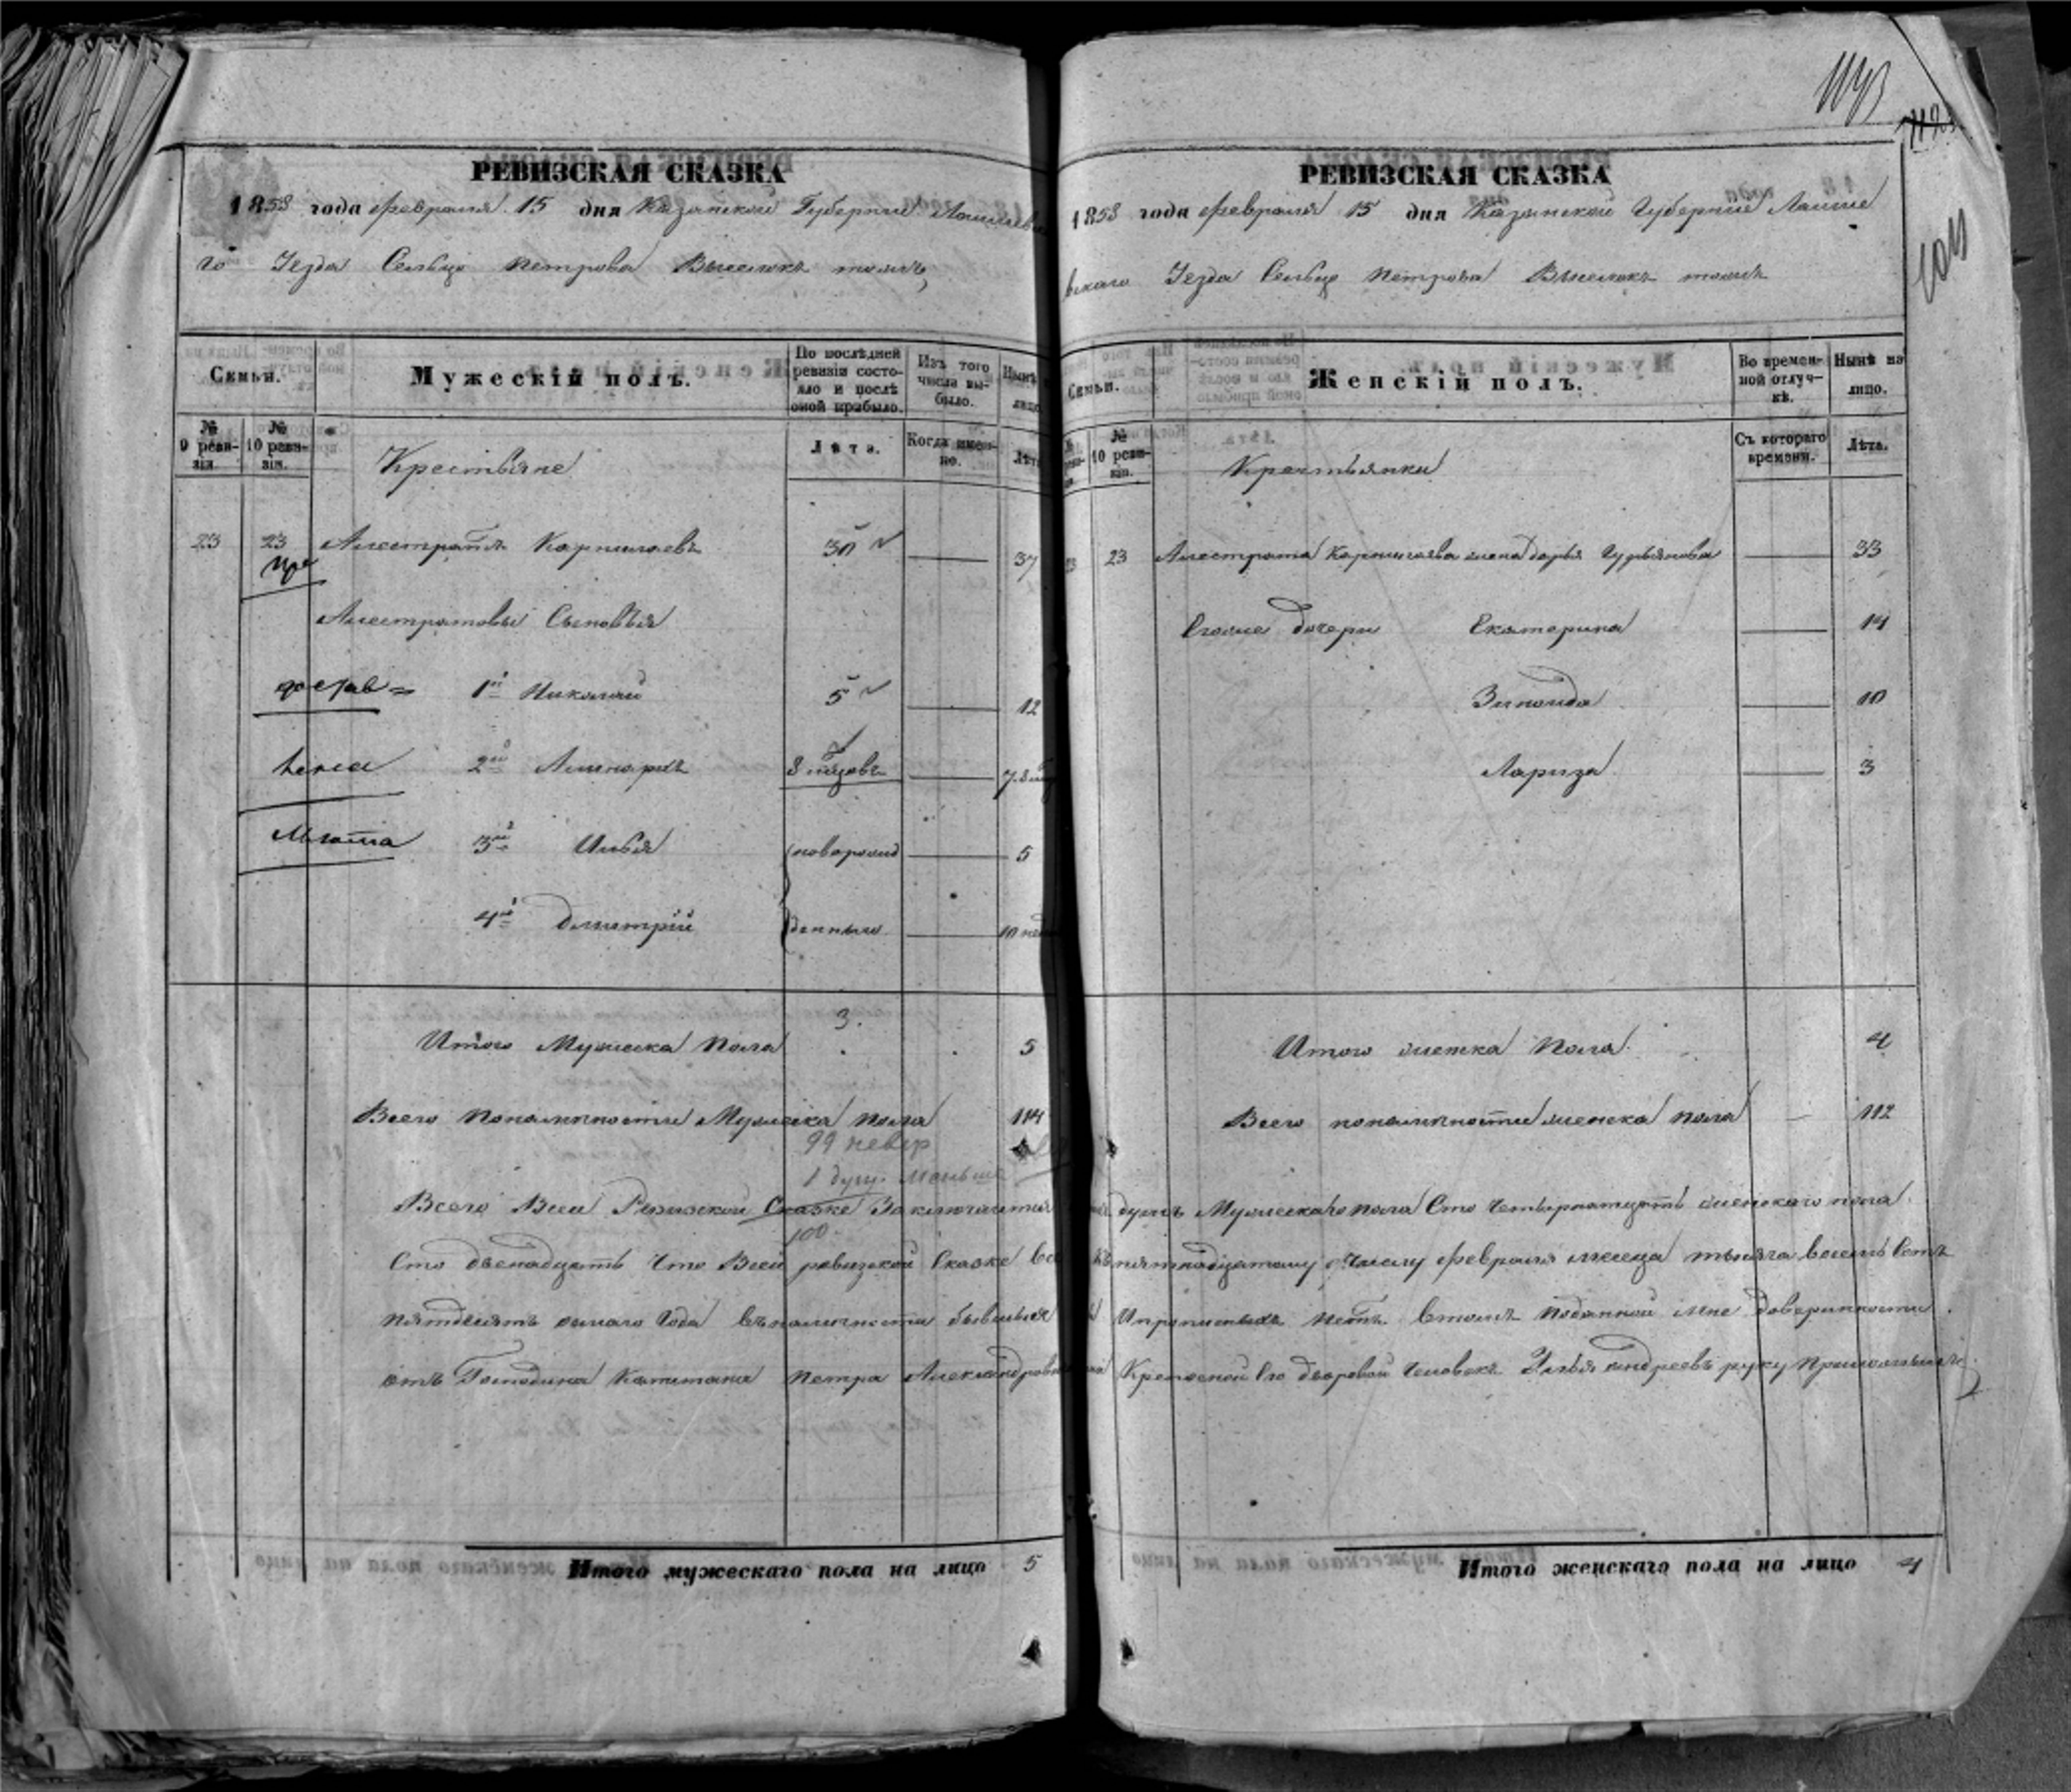 1143
РЕВИЗСКАЯ СКАЗКА
1858 года февраля 15 дня Казанской Губернии Лаишевска
го Уезда Сельцо Петрова Выселокъ тожъ
Семьи.
Мужескій полъ.
По послѣдней ревизіи состояло и послѣ оной прибыло.
Изъ того числа выбыло.
Нынѣ
лицо
№ 9 ревизіи
№ 10 ревизіи.
Крестьяне
Лѣта.
Когда именно.
Лѣта
23 23 Карпилаевъ 30 37
Сыновья
1й Николай 5 12
2й 7
3й Илья новорожд 5
4й Дмитрій денныя 10 нед
3.
Итого Мужеска Пола 5
Всего Поналичности Мужеска пола 114
99 ревиз
1 душ. меньше
100
Итого мужескаго пола на лицо 5
РЕВИЗСКАЯ СКАЗКА
1858 года февраля 15 дня Казанской Губерніи Лаише
вскаго Уезда Сельцо Петрова Выселокъ тожъ
Семьи.
Женскій полъ.
Во временной отлучкѣ.
Нынѣ на лицо.
№ 10 ревизіи.
Крестьянки
Съ котораго времени.
Лѣта.
23 Карпилаева жена Дарья Гурьянова 33
Егоже дочери Екатерина 14
Зиноида 10
Лариза 3
Итого женска Пола 4
Всего поналичности женска пола 112
Всего Всей Ревизской Сказке Заключается душъ Мужескаго пола Сто четырнатцать женскаго пола
Сто двенадцать Что Всей ревизской Сказке пятнадцатому Числу февраля месеца тысяча восемь Сотъ
пятдесятъ осмаго Года въналичности бывшыя Ипрописныхъ нетъ Втомъ поданной мне доверинности
отъ Господина Капитана Петра Александровича Крепосной Его дворовой Человекъ Илья Андреевъ руку Приложылъ
Итого женскаго пола на лицо 4